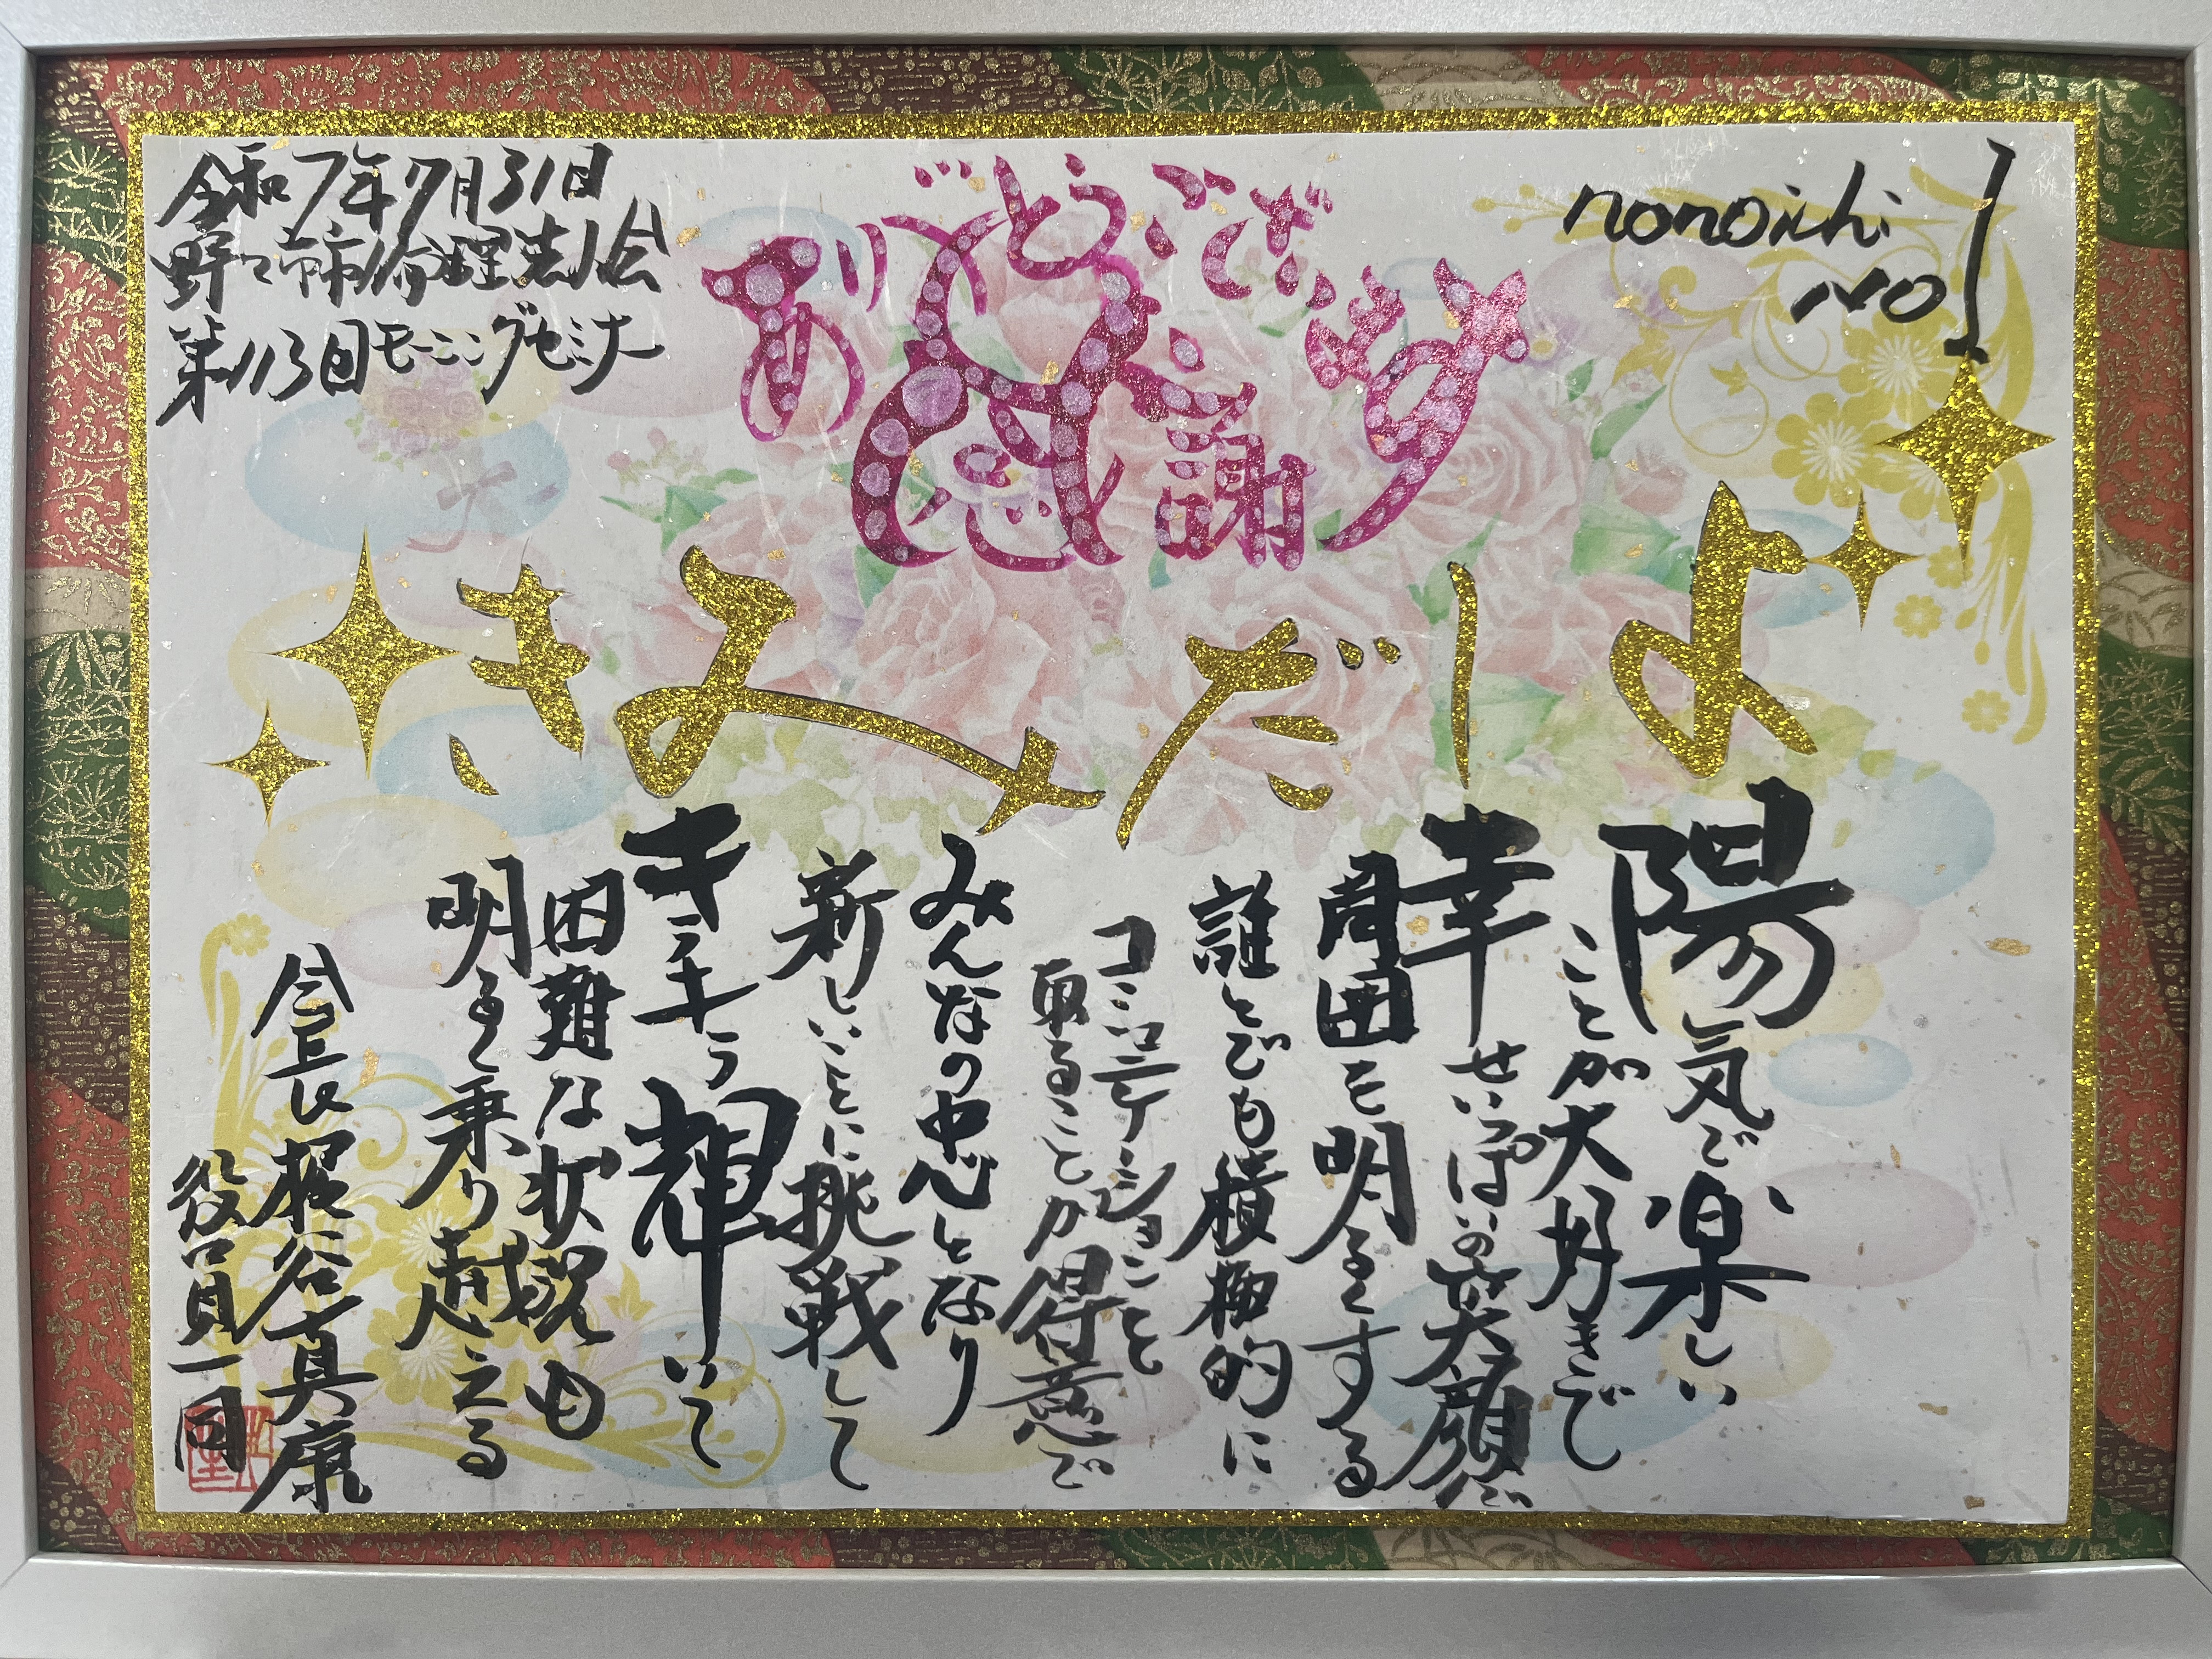 令和7年7月31日
野々市市倫理法人会
第113回モーニングセミナー
ありがとうございます
感謝
nonoichi
NO1
よーだみき
陽気で楽しい
ことが大好きで
幸せいっぱいの笑顔で
周囲を明るくする
誰とでも積極的に
コミュニケーションを
取ることが得意で
みんなの中心となり
新しいことに挑戦して
キラキラ輝いて
困難な状況も
明るく乗り越える
会長 根谷真康
役員一同